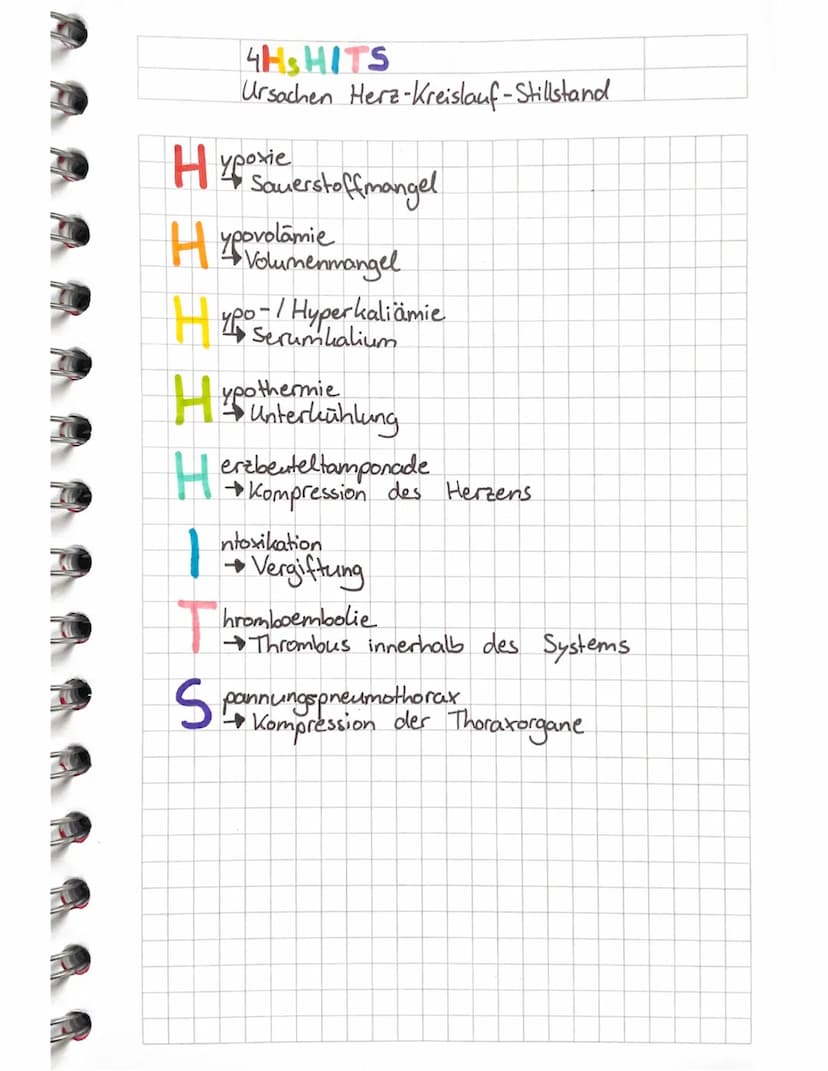 4HsHITS
Ursachen Herz-Kreislauf-Stillstand
Hypoxie
→ Sauerstoffmangel
Hypovolämie
→ Volumenmangel
Hypo-/Hyperkaliämie
→ Serumkalium
Hypothermie
→ Unterkühlung
Herzbeuteltamponade
→ Kompression des Herzens
Intoxikation
→ Vergiftung
Thromboembolie
→ Thrombus innerhalb des Systems
Spannungspneumothorax
→ Kompression der Thoraxorgane